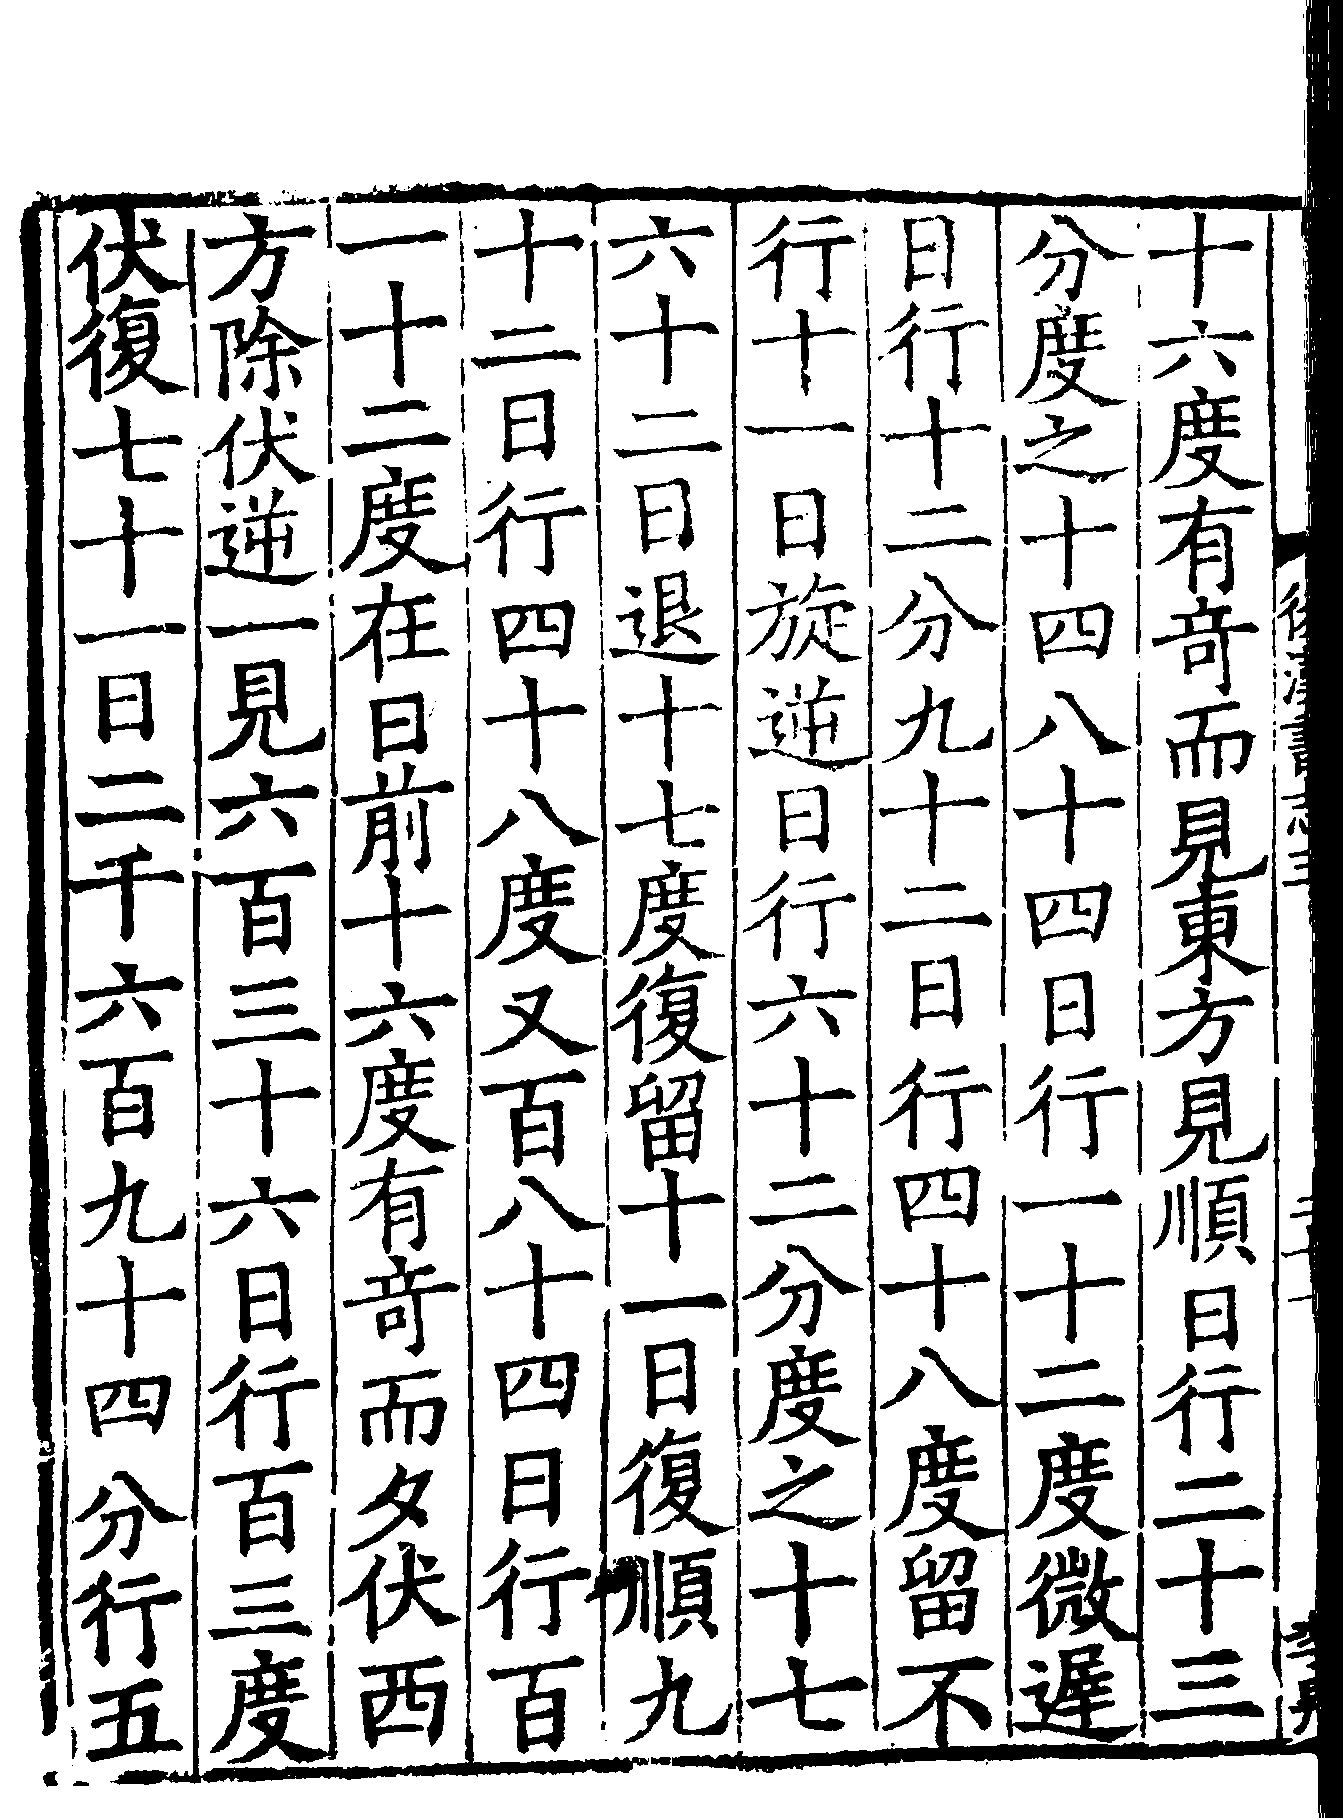 十六度有竒而見東方見順日行二十三
分度之十四八十四日行一十二度微遲
日行十二分九十二日行四十八度留不
行十一日旋逆日行六十二分度之十七
六十二日退十七度復留十一日復順九
十二日行四十八度又百八十四日行百
一十二度在日前十六度有竒而夕伏西
方除伏逆一見六百三十六日行百三度
伏復七十一日二千六百九十四分行五